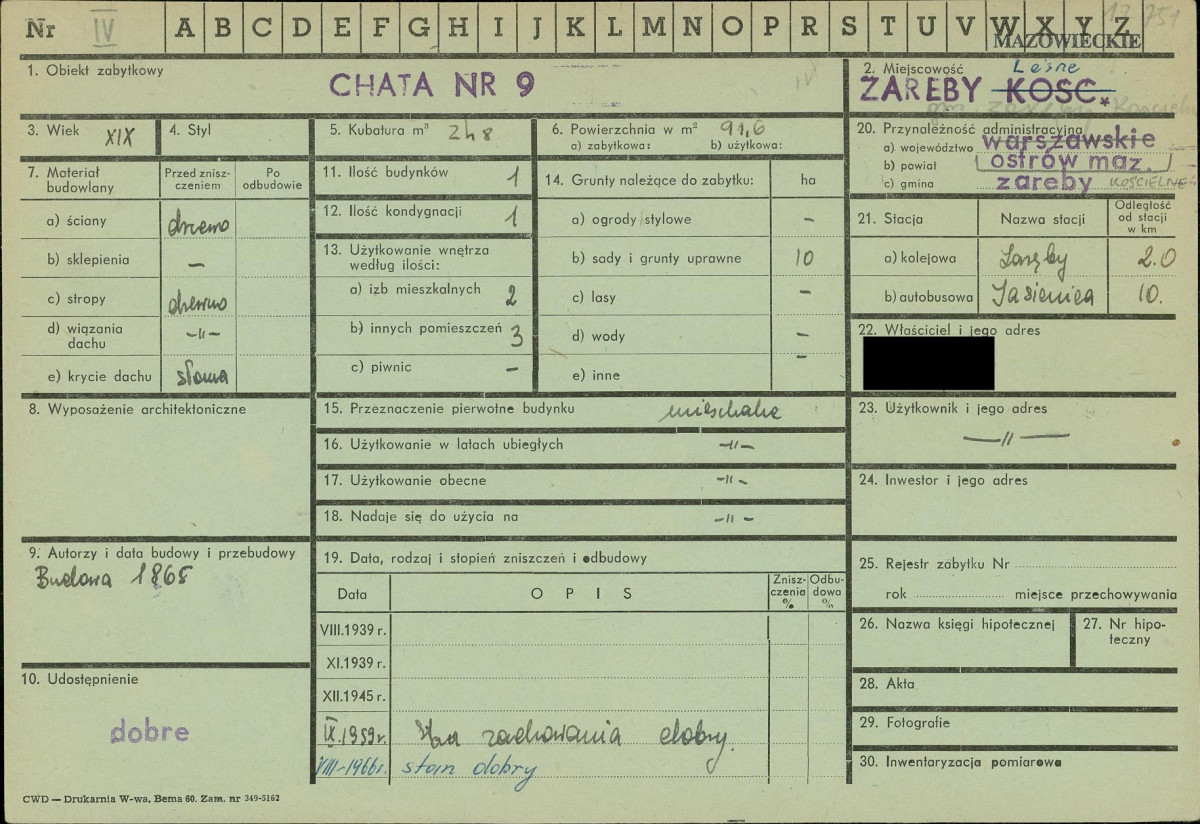 Nr IV A B C D E F G H I J K L M N O P R S T U V W X Y Z
MAZOWIECKIE
1. Obiekt zabytkowy
CHATA NR 9
2. Miejscowość Leśne
ZAREBY KOSC.
3. Wiek XIX
4. Styl
5. Kubatura m³ 248
6. Powierzchnia w m² 91,6
a) zabytkowa: b) użytkowa:
20. Przynależność administracyjna
a) województwo warszawskie
b) powiat ostrów maz.
c) gmina zareby KOŚCIELNE
7. Materiał budowlany
Przed znisz-
czeniem
Po
odbudowie
a) ściany drzewo
b) sklepienia –
c) stropy drzewo
d) wiązania
dachu –"–
e) krycie dachu słoma
11. Ilość budynków 1
12. Ilość kondygnacji 1
13. Użytkowanie wnętrza
według ilości:
a) izb mieszkalnych 2
b) innych pomieszczeń 3
c) piwnic –
14. Grunty należące do zabytku: ha
a) ogrody stylowe –
b) sady i grunty uprawne 10
c) lasy –
d) wody –
e) inne –
21. Stacja
Nazwa stacji
Odległość
od stacji
w km
a) kolejowa 2.0
b) autobusowa Jasienica 10.
22. Właściciel i jego adres
8. Wyposażenie architektoniczne
15. Przeznaczenie pierwotne budynku mieszkalne
16. Użytkowanie w latach ubiegłych –"–
17. Użytkowanie obecne –"–
18. Nadaje się do użycia na –"–
23. Użytkownik i jego adres
–"–
24. Inwestor i jego adres
9. Autorzy i data budowy i przebudowy
Budowa 1865
19. Data, rodzaj i stopień zniszczeń i odbudowy
Data
OPIS
Znisz-
czenia
%
Odbu-
dowa
%
VIII.1939 r.
XI.1939 r.
XII.1945 r.
IX.1959 r. zachowania dobry.
VIII-1966r. stan dobry
25. Rejestr zabytku Nr
rok miejsce przechowywania
26. Nazwa księgi hipotecznej
27. Nr hipo-
teczny
10. Udostępnienie
dobre
28. Akta
29. Fotografie
30. Inwentaryzacja pomiarowa
CWD — Drukarnia W-wa, Bema 60. Zam. nr 349-5162